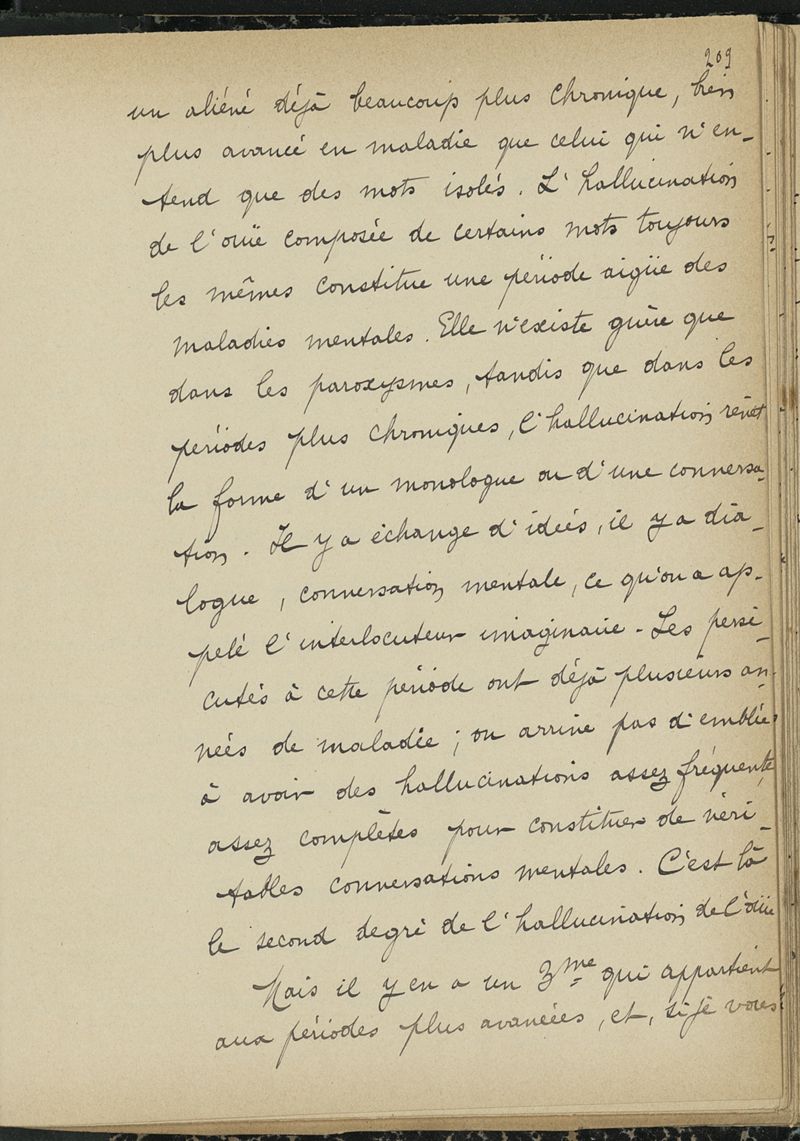 209
un aliéné déjà beaucoup plus chronique, bien
plus avancé en maladie que celui qui n'en-
tend que des mots isolés. L'hallucination
de l'ouïe composée de certains mots toujours
les mêmes constitue une période aigüe des
maladies mentales. Elle n'existe guère que
dans les paroxysmes, tandis que dans les
périodes plus chroniques, l'hallucination revêt
la forme d'un monologue ou d'une conversa-
tion. Il y a échange d'idées, il y a dia-
logue, conversation mentale, ce qu'on a ap-
pelé l'interlocuteur imaginaire. Les persé-
cutés à cette période ont déjà plusieurs an-
nées de maladie ; on arrive pas d'emblée
à avoir des hallucinations assez fréquentes
assez complètes pour constituer de véri-
tables conversations mentales. C'est là
le second degré de l'hallucination de l'ouïe
Mais il y en a un 3me qui appartient
aux périodes plus avancées, et, si je vous